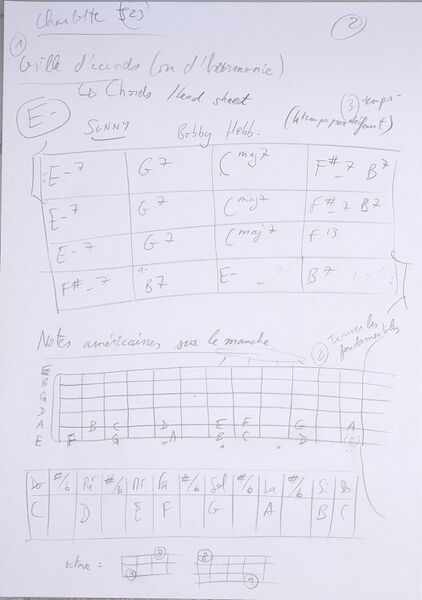 Charlotte
②
① Grille d'accords (ou d'harmonie)
↳ Chords / Lead sheet
③ temps
(4 temps par défaut)
E-
SUNNY Bobby Hebb.
E-7 G7 Cmaj7 F#-7 B7
E-7 G7 Cmaj7 F#-7 B7
E-7 G7 Cmaj7 F13
F#-7 B7 E- B7
Notes américaines sur le manche
② Trouver les fondamentales
E
B
G
D
A B C D E F G A
E F G A B C D E
Do #/b Ré #/b Mi Fa #/b Sol #/b La #/b Si Do
C D E F G A B C
octave =